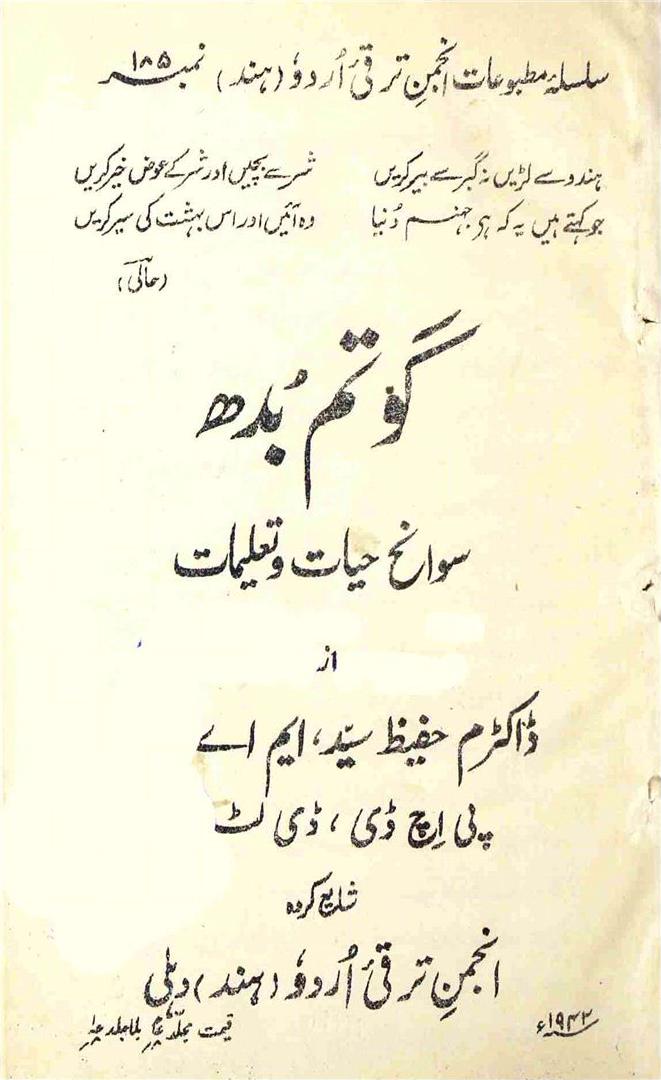 سلسلۂ مطبوعات انجمنِ ترقیٔ اُردوٗ (ہند) نمبر ۱۸۵
ہندو سے لڑیں نہ گبر سے بیر کریں شر سے بچیں اور شر کے عوض خیر کریں
جو کہتے ہیں یہ کہ ہی جہنم دُنیا وہ آئیں اور اس بہشت کی سیر کریں
(حالیؔ)
گوتم بُدھ
سوانح حیات و تعلیمات
از
ڈاکٹر م حفیظ سیّد، ایم اے
پی اِچ ڈی، ڈی لٹ
شایع کردہ
انجمنِ ترقیٔ اُردوٗ (ہند) دہلی
۱۹۴۲ء
قیمت مجلّد بلا جلد